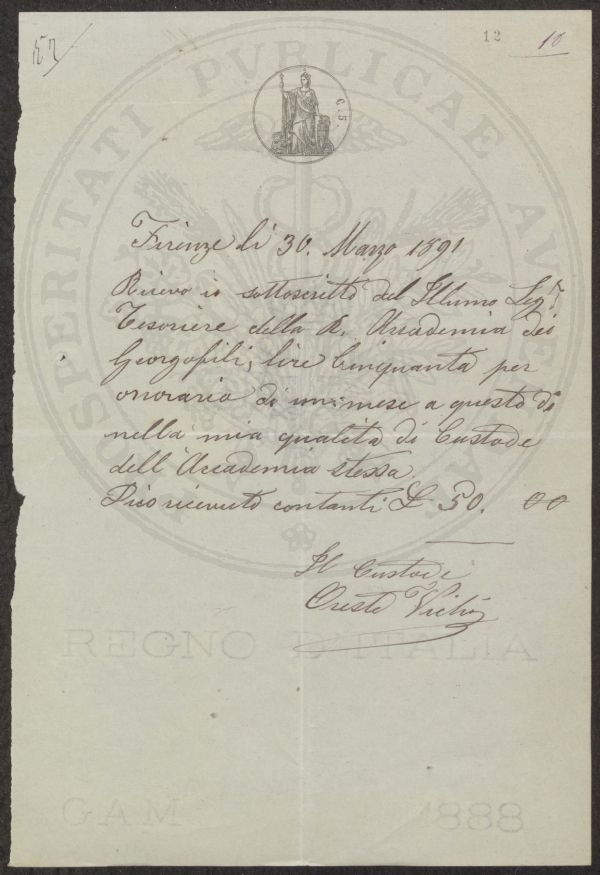 12
10
C. 5.
PROSPERITATI PVBLICAE
Firenze li 30. Marzo 1891
Ricevo io sottoscritto dal Illumo Sigr
Tesoriere della R. Accademia dei
Georgofili, lire Cinquanta per
onorario di un mese a questo dì
nella mia qualita di Custode
dell'Accademia stessa.
Dico ricevuto contanti £ 50. 00
Il Custode
Oreste
REGNO D'ITALIA
GAM 1888